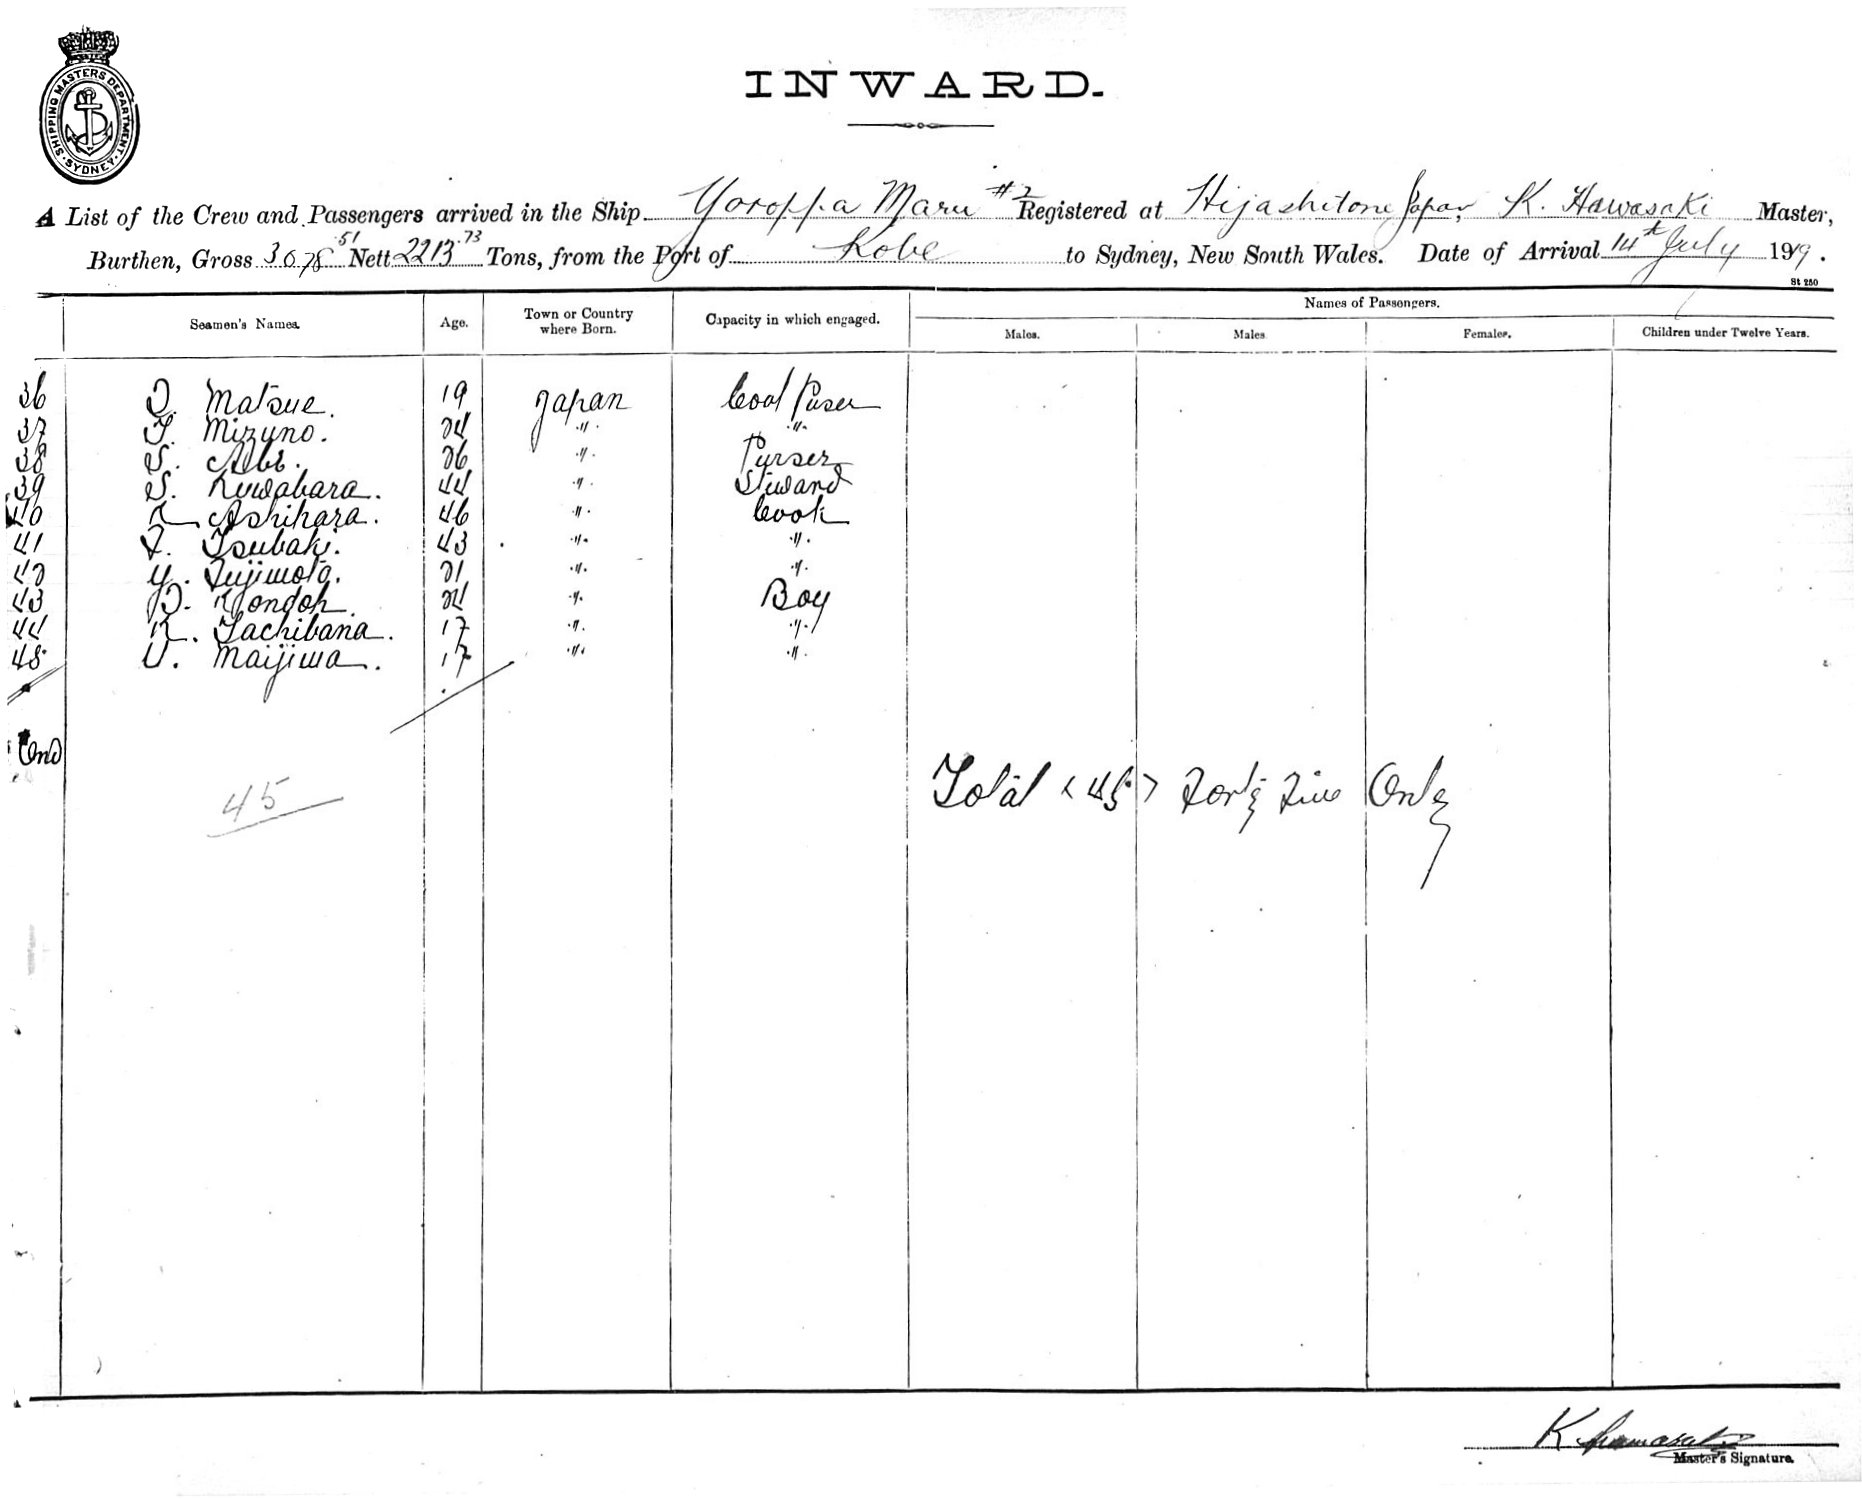 SHIPPING MASTERS DEPARTMENT · SYDNEY ·
INWARD.
A List of the Crew and Passengers arrived in the Ship Yoroppa Maru #2 Registered at Hijashitone Japan, K. Hawasaki Master,
Burthen, Gross 3678.51 Nett 2213.73 Tons, from the Port of Kobe to Sydney, New South Wales. Date of Arrival 14th July 1919.
St 250
Seamen's Names. Age. Town or Country where Born. Capacity in which engaged. Names of Passengers.
Males. Males. Females. Children under Twelve Years.
36 Matsue. 19 Japan Coal Passer
37 T. Mizuno. 24 " "
38 S. Abe. 26 " Purser
39 S. Kuwabara. 44 " Steward
40 K Ashihara. 46 " Cook
41 T. Tsubaki. 43 " "
42 Y. Fujimoto. 21 " "
43 Kondoh. 24 " Boy
44 K. Tachibana. 17 " "
45 U. Maijima. 17 " "
End
45
Total <45> Forty Five Only
K Hawasaki
Master's Signature.